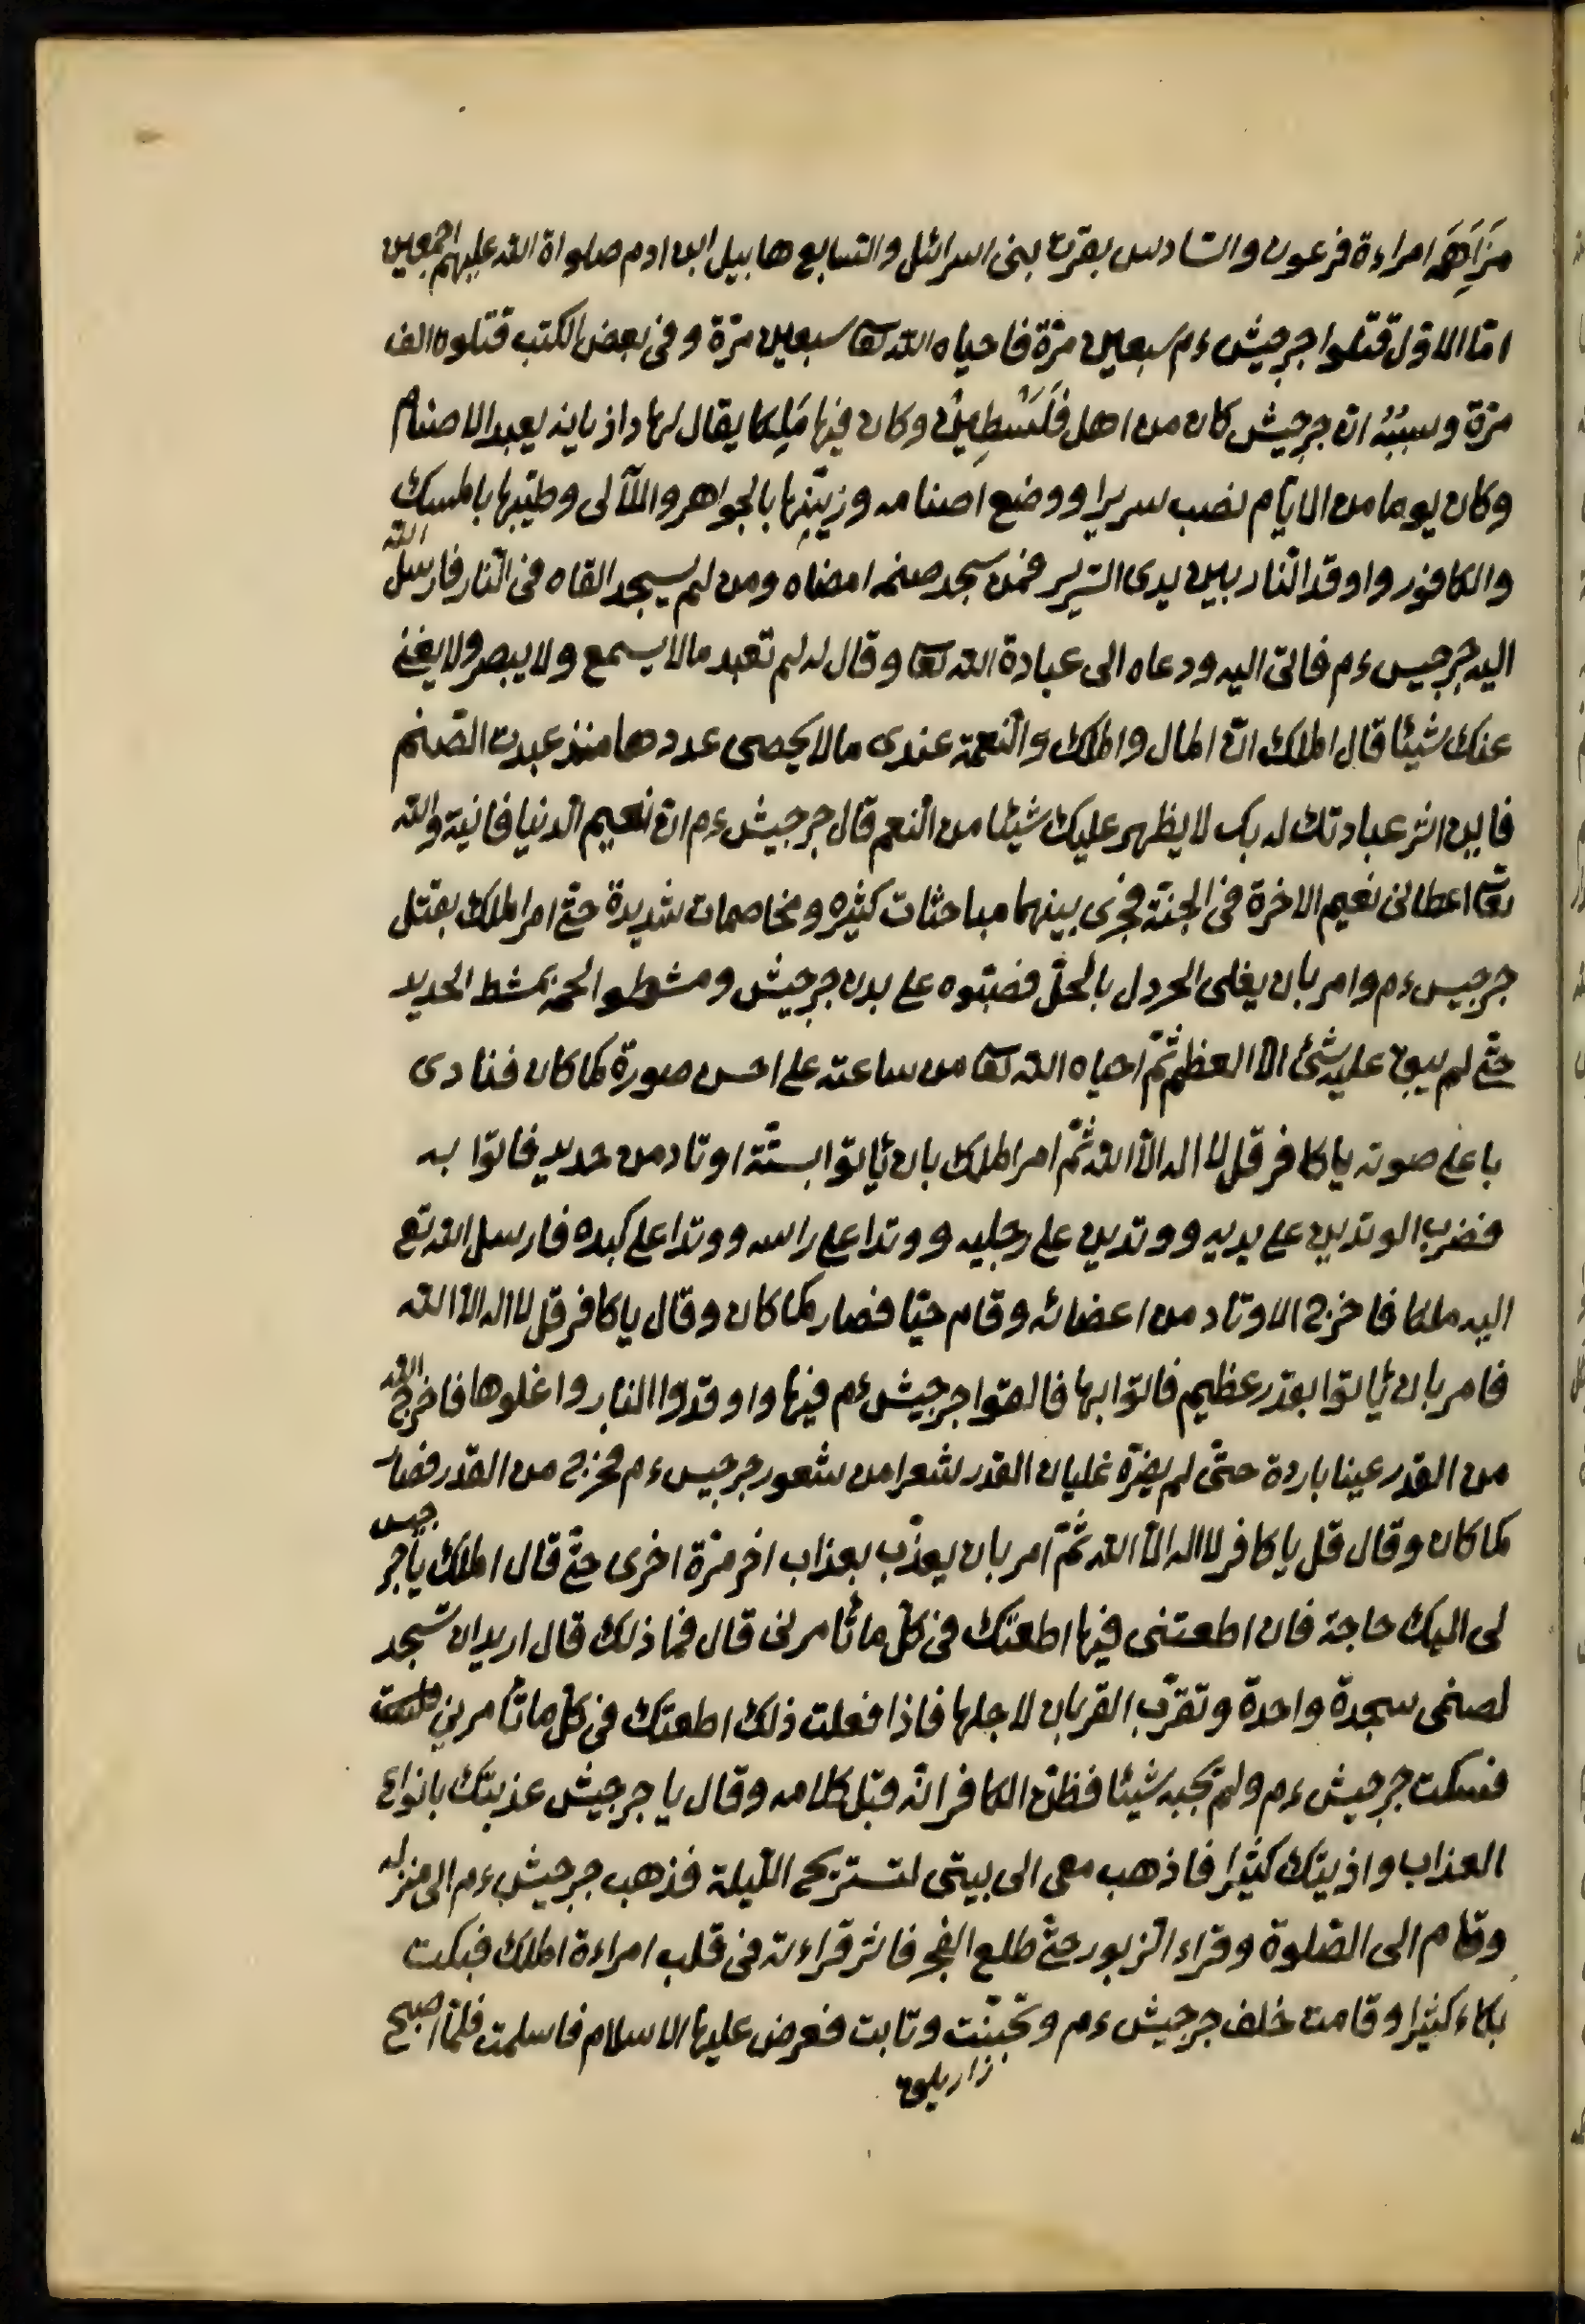 مَزَاهَِمَ امراءة فرعون والسّادس بقرت بنى اسرائل والسّابع هابيل ابن ادم صلواة الله عليهم اجمعين
امّا الاوّل قتلوا جرجيش ءم سبعين مرّة فاحياه الله تعا سبعين مرّة وفى بعض الكتب قتلوه الف
مرّة وسببُهُ انّ جرجيش كان من اهل فَلَسْطِينْ وكان فيها مَلِكا يقال لها داذيانه يعبد الاصنام
وكان يوما من الايّام نصب سريرا ووضع اصنامه وزيّنها بالجواهر واللآلى وطيّبها بالمسك
والكافور واوقد النّار بين يدى السّرير فمن سجد صنمه امضاه ومن لم يسجد القاه فى النّار فارسل الله
اليه جرجيس ءم فاتى اليه ودعاه الى عبادة الله تعا وقال له لم تعبد مالا يسمع ولا يبصر ولا يغنى
عنك شيئا قال الملك انّ المال والملك والنّعمة عندى مالا يحصى عددها منذ عبدت الصّنم
فاين اثر عبادتك لربك لا يظهر عليك شيئا من النّعم قال جرجيش ءم انّ نعيم الدّنيا فانية والله
تعا اعطانى نعيم الاخرة فى الجنّة فجرى بينهما مباحثات كثيره ومخاصمات شديدة حتّى امر الملك بقتل
جرجيس ءم وامر بان يغلى الخردل بالخلّ فصبّوه على بدن جرجيش ومشطوا لحمه بمشط الحديد
حتّى لم يبق عليه شئ الاّ العظم ثمّ احياه الله تعا من ساعته على احسن صورة كما كان فنادى
باعلى صوته ياكافر قل لا اله الاّ الله ثمّ امر الملك بان يأتوا بستّة اوتاد من حديد فاتوا به
فضرب الوتدين على يديه ووتدين على رجليه ووتدا على راسه ووتدا على كبده فارسل الله تع
اليه ملكا فاخرج الاوتاد من اعضائه وقام حيّا فصار كما كان وقال ياكافر قل لا اله الا الله
فامر بان يأتوا بقدر عظيم فاتوا بها فالقوا جرجيش ءم فيها واوقدوا النار واغلوها فاخرج الله
من القدر عينا باردة حتّى لم يضرّه غليان القدر شعرا من شعور جرجيس ءم فخرج من القدر فصار
كما كان وقال قل ياكافر لا اله الاّ الله ثمّ امر بان يعذّب بعذاب اخر مرّة اخرى حتّى قال الملك ياجرجيس
لى اليك حاجة فان اطعتنى فيها اطعتك فى كلّ ما تأمرنى قال فما ذلك قال اريد ان تسجد
لصنمى سجدة واحدة وتقرّب القربان لاجلها فاذا فعلت ذلك اطعتك فى كلّ ما تأمرني
فسكت جرجيش ءم ولم يجبه شيئا فظنّ الكافر انّه قبل كلامه وقال يا جرجيش عذبتك بانواع
العذاب واذيتك كثيرا فاذهب معى الى بيتى لتستريح اللّيلة فذهب جرجيش ءم الى منزله
وقام الى الصّلوة وقراء الزّبور حتّى طلع الفجر فاثر قراءته فى قلب امراءة الملك فبكت
بكاء كثيرا وقامت خلف جرجيش ءم وتابت فعرض عليها الاسلام فاسلمت فلمّا اصبح